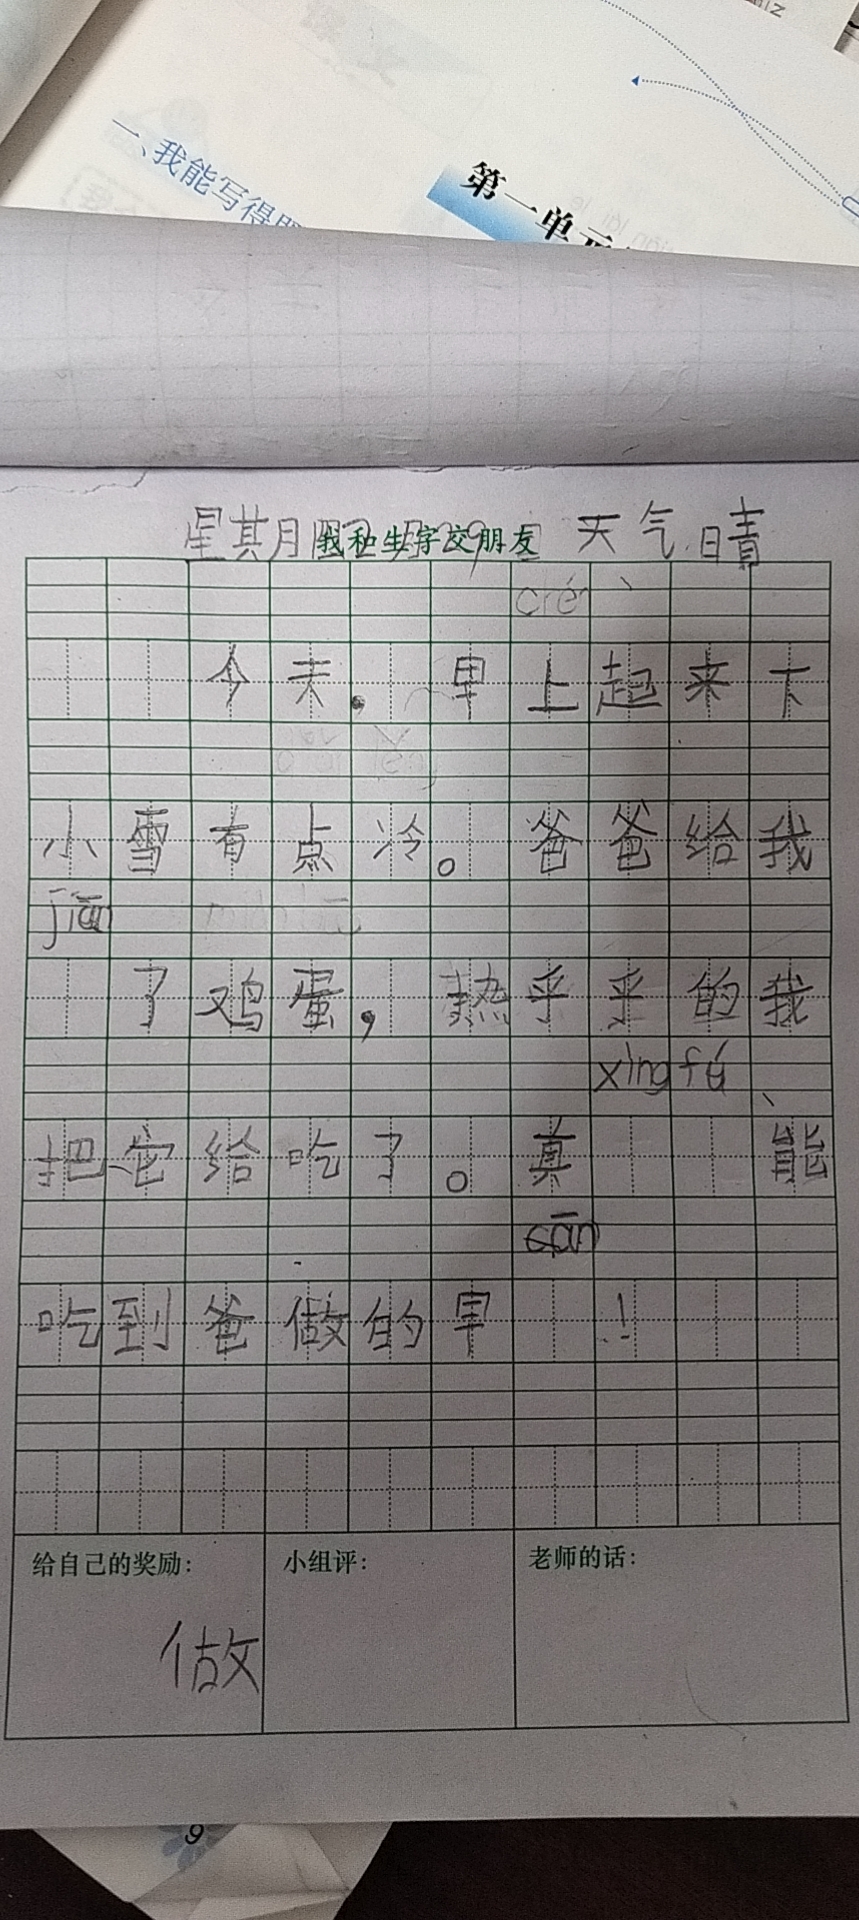 一、我能写得
第一单元
我和生字交朋友
星其月 天气晴
今天，早上起来下
小雪有点冷。爸爸给我
jiān
了鸡蛋，热乎乎的我
xìng fú
把它给吃了。真 能
cān
吃到爸做的早 ！
给自己的奖励： 小组评： 老师的话：
做
9